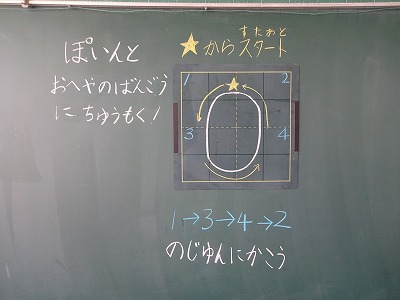 ぽいんと
おへやのばんごう
に ちゅうもく!
すたあと
★からスタート
1 2
3 4
1→3→4→2
のじゅんにかこう